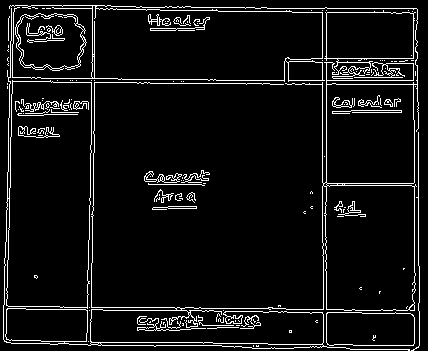 Logo
Header
Search Box
Navigation
Menu
Calendar
Content
Area
Ad
Copyright Notice